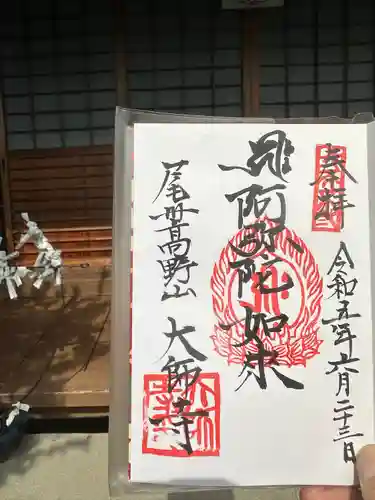 奉拝
令和五年六月二十三日
阿弥陀如来
尾州高野山
大師寺